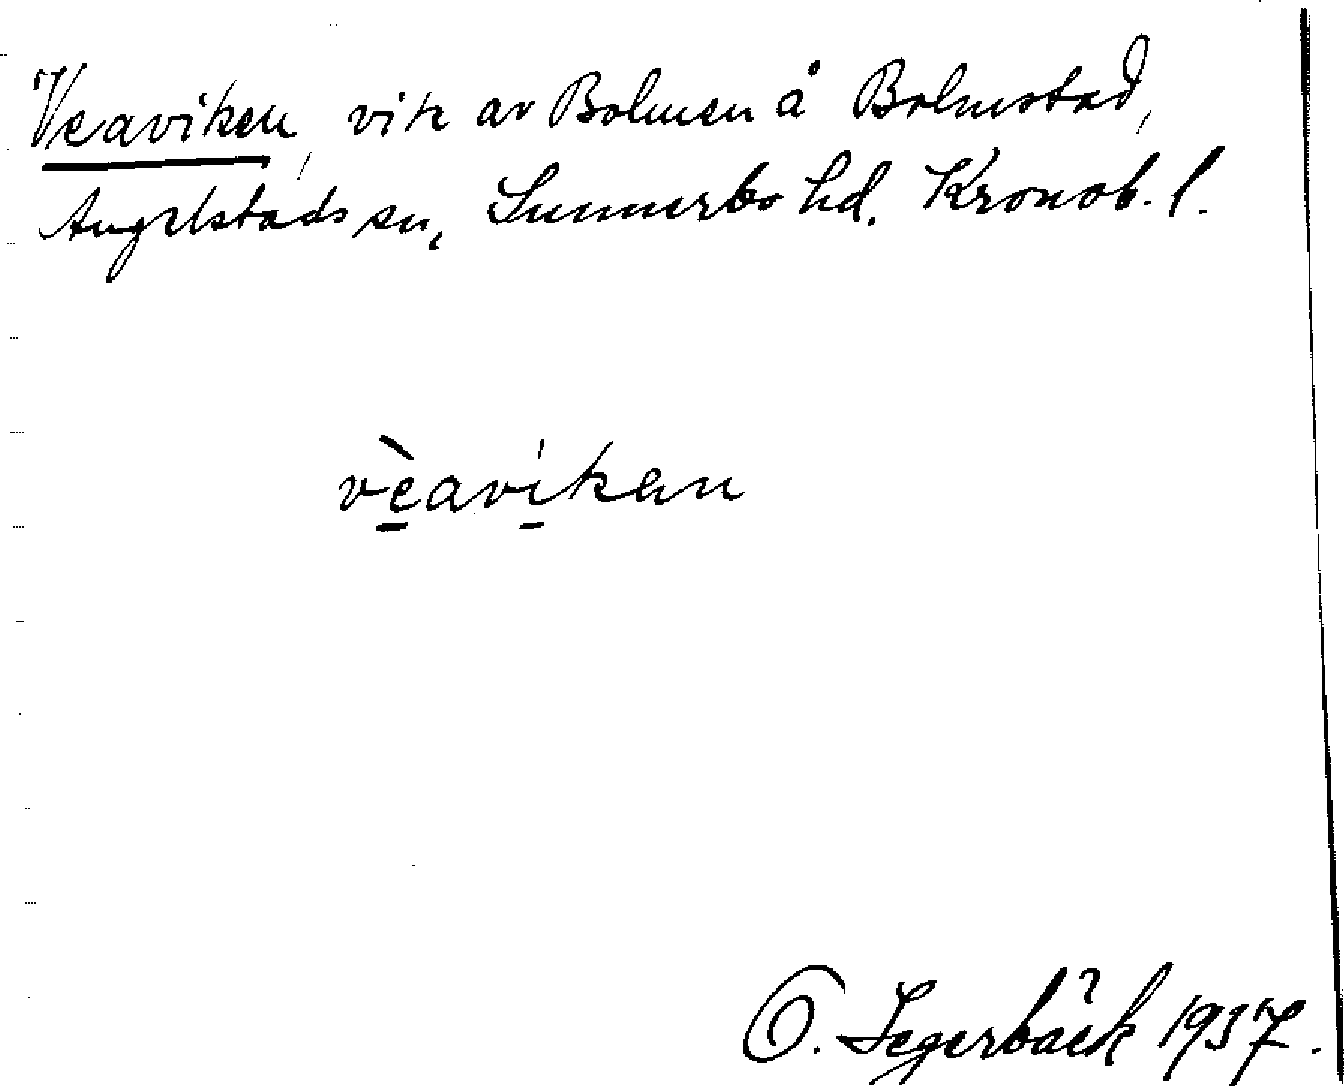 Veaviken, vik av Bolmen å Bolmstad,
Angelstads sn, Sunnerbo hd. Kronob. l.
vèavíkan
O. Segerbäck 1937.